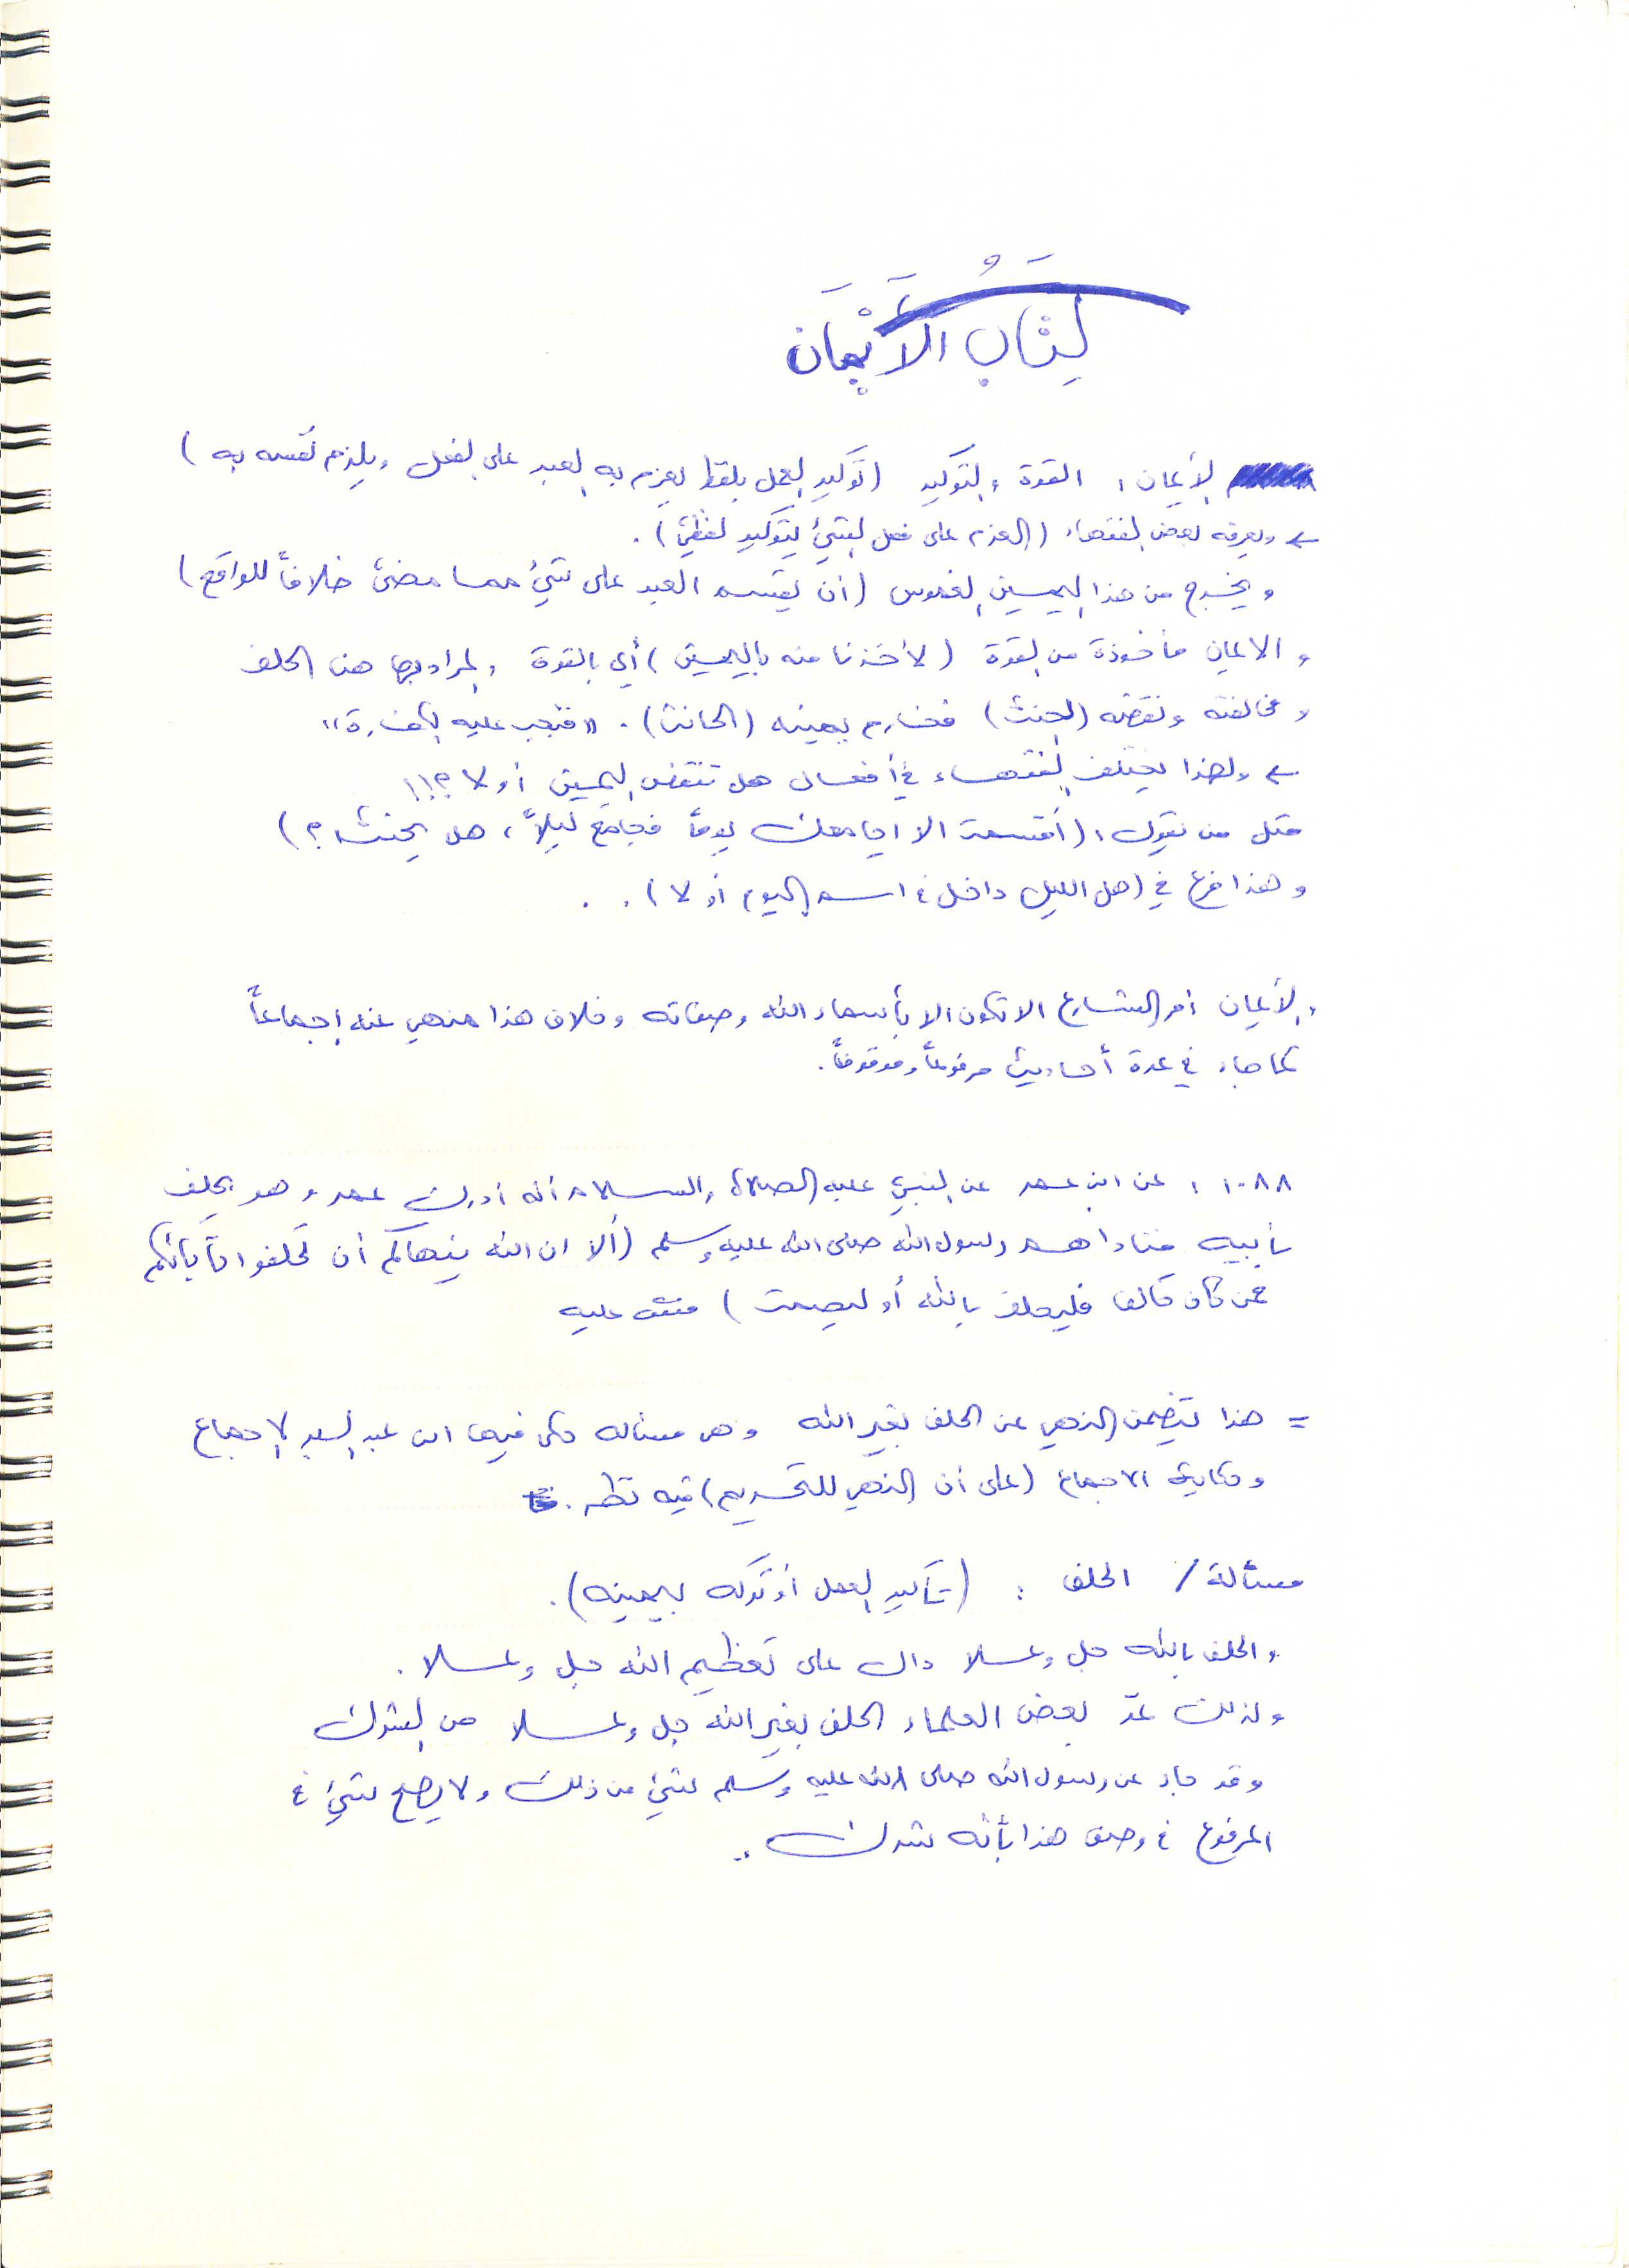 كِتَابُ الأَيْمَان
الأيمان: القوة والتوكيد (توكيد العمل بلفظ يعزم به العبد على الفعل ويلزم نفسه به)
← ويعرفه بعض الفقهاء (العزم على فعل الشيء بتوكيد لفظيّ).
ويخرج من هذا اليمين الغموس (أن يقسم العبد على شيء مما مضى خلافاً للواقع)
والايمان مأخوذة من القوة (لأخذنا منه باليمين) أي بالقوة والمراد بها هنا الحلف
ومخالفته ونقضه (الحنث) فخارم يمينه (الحانث). «فتجب عليه الكفارة»
← ولهذا يختلف الفقهاء في أفعال هل تنقض اليمين أو لا ؟!!
مثل من يقول: (أقسمت الا اجامعك يوماً فجامع ليلاً، هل يحنث؟)
وهذا فرع في (هل الليل داخل في اسم اليوم أو لا)..
والأيمان أمر الشارع الا تكون الا بأسماء الله وصفاته وخلاف هذا منهي عنه إجماعاً
كما جاء في عدة أحاديث مرفوعاً وموقوفاً.
١٠٨٨: عن ابن عمر عن النبي عليه الصلاة والسلام أنه أدرك عمر وهو يحلف
بأبيه فناداهم رسول الله صلى الله عليه وسلم (ألا ان الله ينهاكم أن تحلفوا بآبائكم
فمن كان حالفا فليحلف بالله أو ليصمت) متفق عليه
= هذا يتضمن النهي عن الحلف بغير الله وهي مسألة حكى فيها ابن عبد البر الإجماع
وحكاية الاجماع (على أن النهي للتحريم) فيه نظر.
مسألة / الحلف: (تأكيد العمل أو تركه بيمينه).
والحلف بالله جل وعلا دال على تعظيم الله جل وعلا.
ولذلك عدّ بعض العلماء الحلف بغير الله جل وعلا من الشرك
وقد جاء عن رسول الله صلى الله عليه وسلم شيء من ذلك ولا يصح شيء في
المرفوع في وصف هذا بأنه شرك..